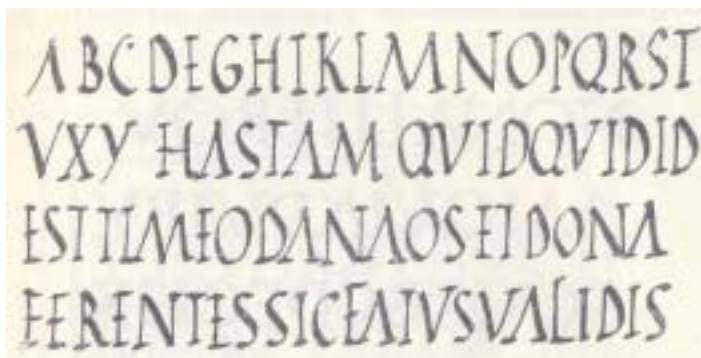 ABCDEGHIKLMNOPQRST
VXY HASTAM QVIDQVIDID
ESTTIMEODANAOS ET DONA
FERENTES SIC FATVS VALIDIS